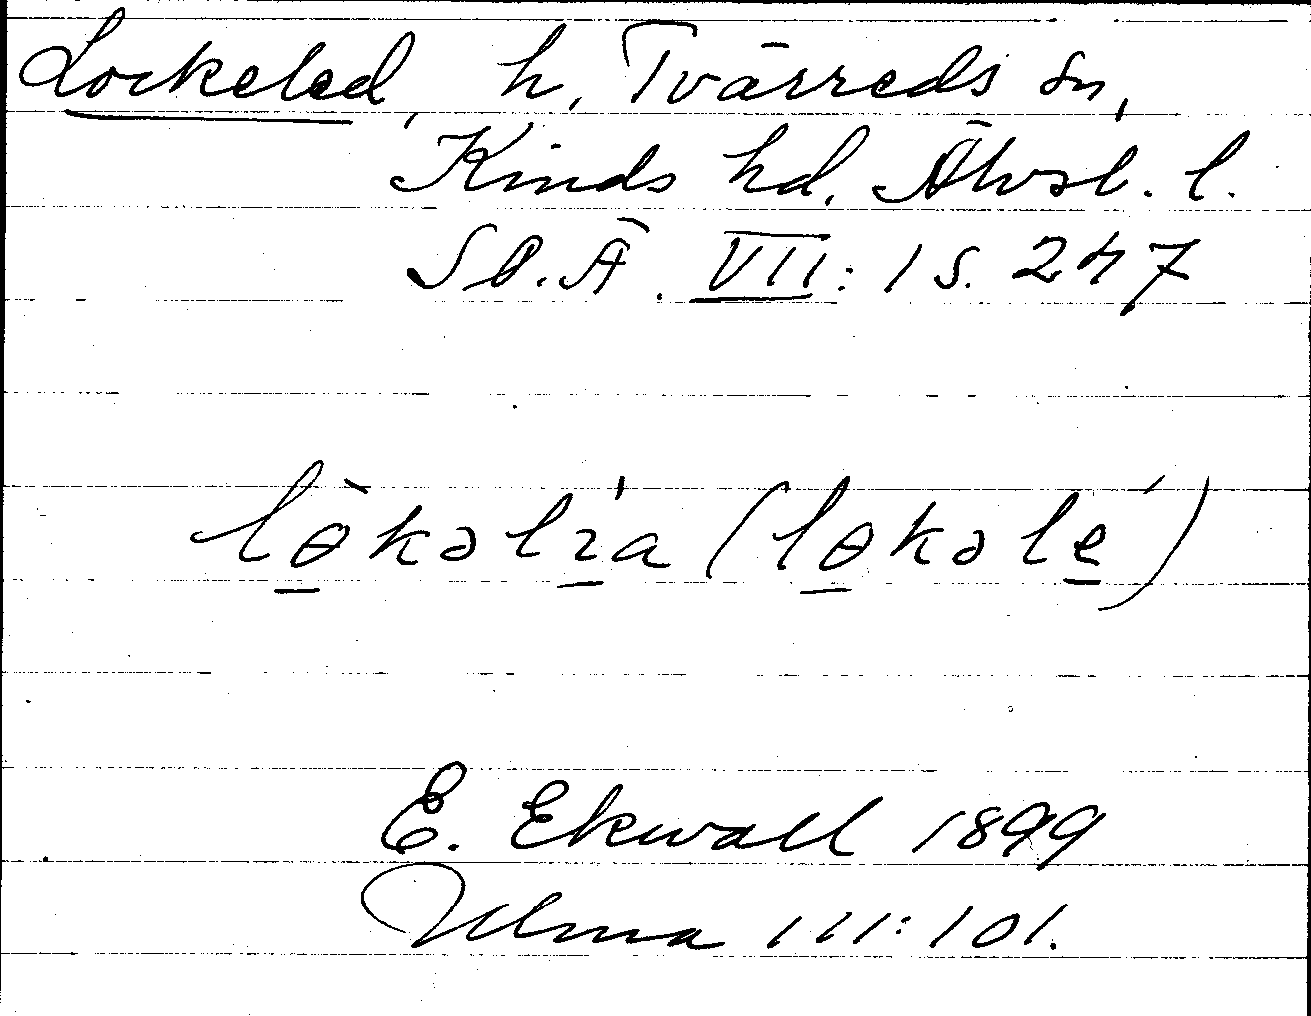 Lockeled, h, Tvärreds sn,
Kinds hd. Älvsb. l.
SO.Ä. VII: 1 s. 247
lɵ̠̀kəlɩ̠'a (lɵ̠kəlé̠)
E. Ekwall 1899
Ulma 111:101.